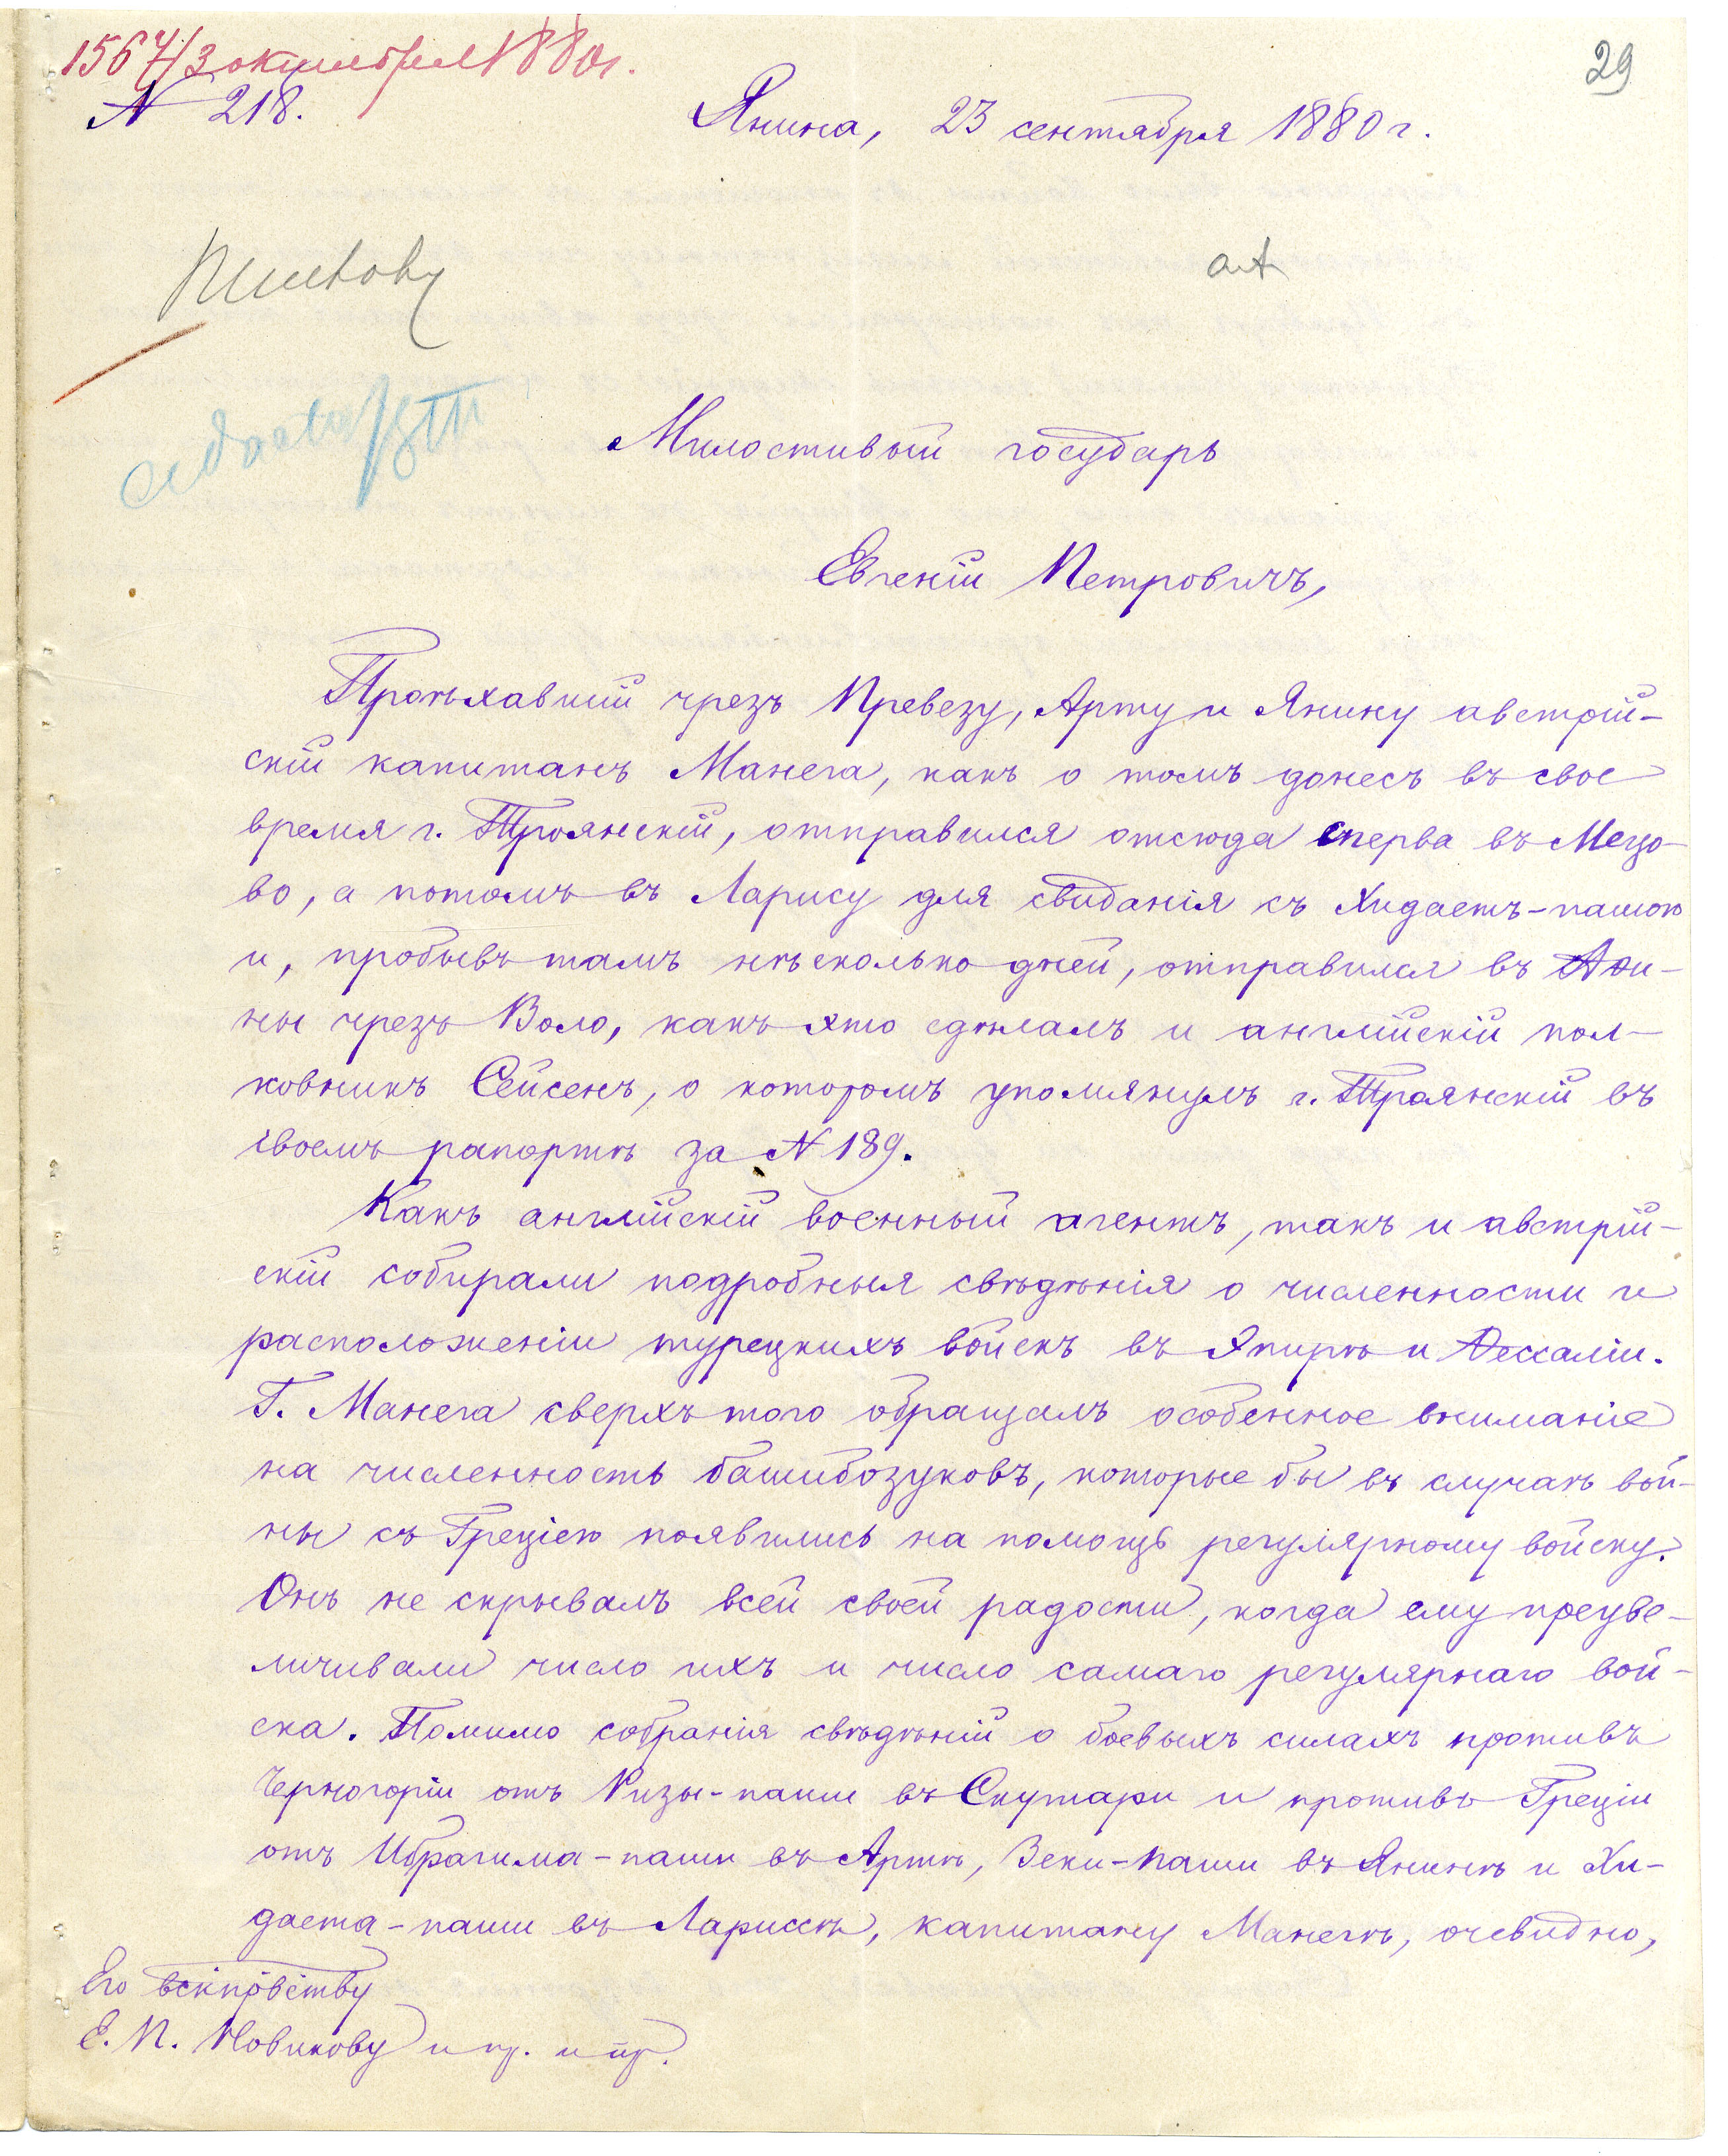 1564/3 октября 1880 г.
29
N 218.
Янина, 23 сентября 1880 г.
Милостивый государь
Евгеній Петровичъ,
Проѣхавшій чрезъ Превезу, Арту и Янину австрій-
скій капитанъ Манега, какъ о томъ донесъ въ свое
время г. Троянскій, отправился отсюда сперва въ Мецо-
во, а потомъ въ Ларису для свиданія съ Хидаетъ-пашою
и, пробывъ тамъ нѣсколько дней, отправился въ Аѳи-
ны чрезъ Воло, какъ это сдѣлалъ и англійскій пол-
ковникъ Сейсенъ, о которомъ упомянулъ г. Троянскій въ
своемъ рапортѣ за N 189.
Какъ англійскій военный агентъ, такъ и австрій-
скій собирали подробныя свѣдѣнія о численности и
расположеніи турецкихъ войскъ въ Эпирѣ и Ѳессаліи.
Г. Манега сверхъ того обращалъ особенное вниманіе
на численность башибозуковъ, которые бы въ случаѣ вой-
ны съ Греціею появились на помощь регулярному войску.
Онъ не скрывалъ всей своей радости, когда ему преуве-
личивали число ихъ и число самаго регулярнаго вой-
ска. Помимо собранія свѣдѣній о боевыхъ силахъ противъ
Черногоріи отъ Ризы-паши въ Скутари и противъ Греціи
отъ Ибрагима-паши въ Артѣ, Зеки-паши въ Янинѣ и Хи-
даета-паши въ Лариссѣ, капитану Манегѣ, очевидно,
Его вскпрвству
Е. П. Новикову и пр. и пр.